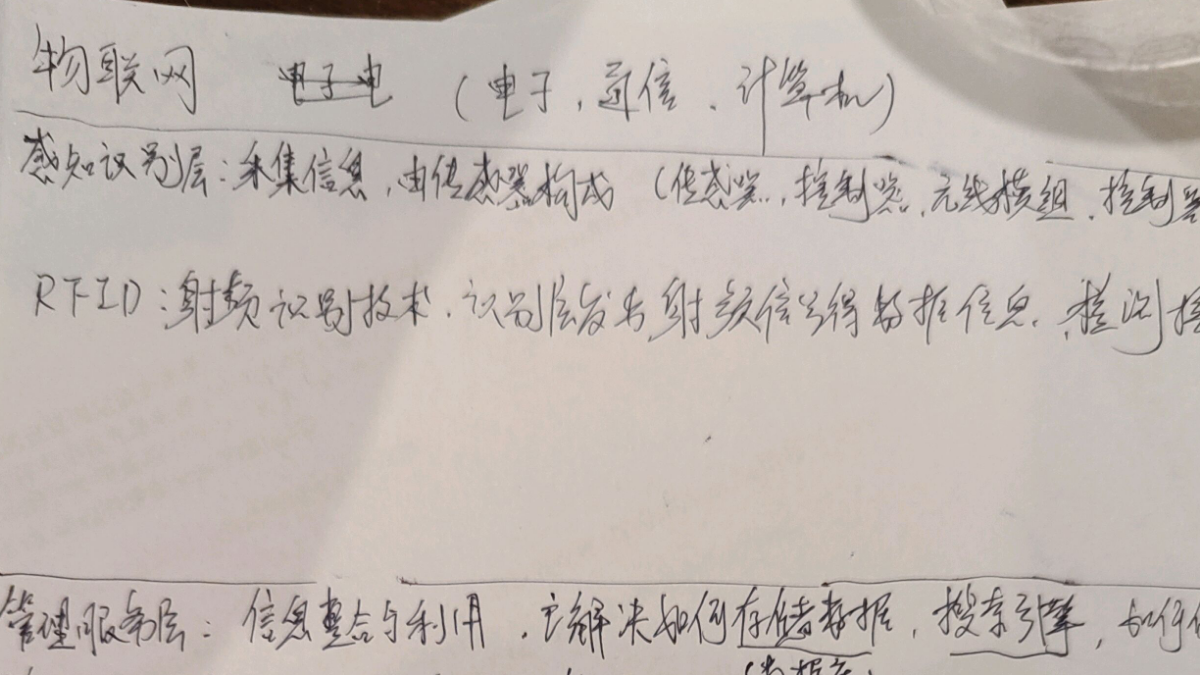 物联网 电子电 (电子,通信,计算机)
感知识别层:采集信息,由传感器构成 (传感器,控制器,无线模组,控制器
RFID:射频识别技术,识别层发出射频信号得数据信息,
管理服务层:信息整合与利用,解决如何存储数据,搜索引擎,如何
(数据库)